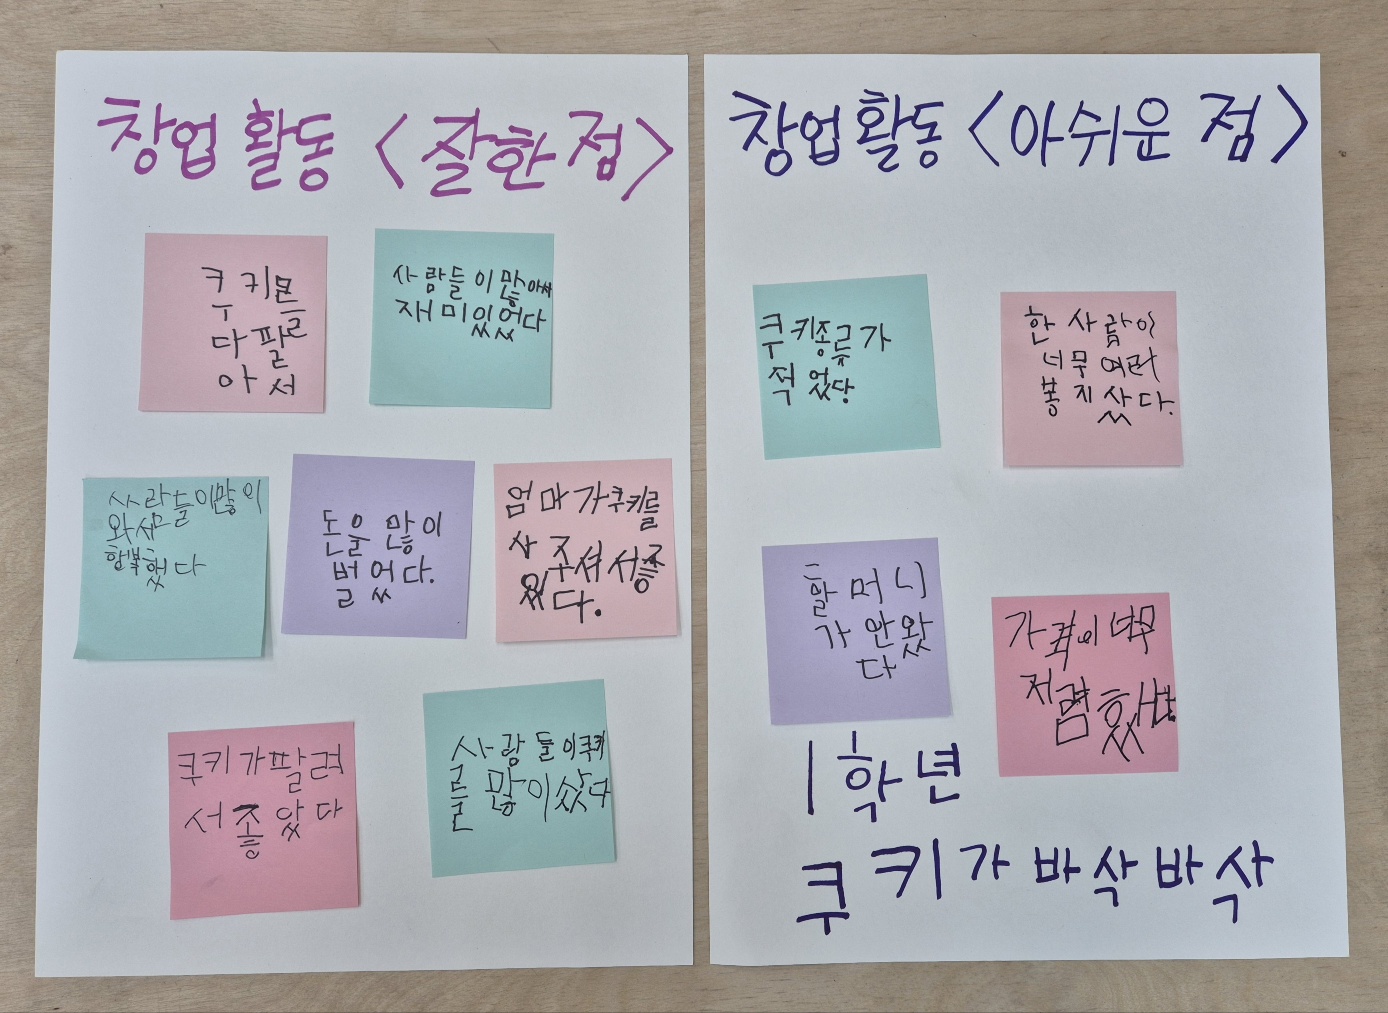 창업 활동 <잘한 점>
쿠키를
다 팔
아서
사람들이 많아서
재미있었다
사람들이많이
와서
행복했다
돈을 많이
벌었다.
엄마가쿠키를
사주셔서
있다.
쿠키가팔려
서 좋았다
사람들이쿠키
를 많이샀다
창업활동 <아쉬운 점>
쿠키종류가
적었당
한 사람이
너무 여러
봉지 샀다.
할머니
가 안왔
다
가격이 너무
저렴했다.
1학년
쿠키가 바삭바삭